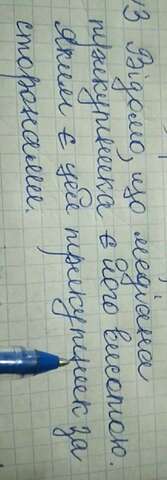 13 Відомо, що медіана
трикутника є його висотою.
Яким є цей трикутник за
сторонами.